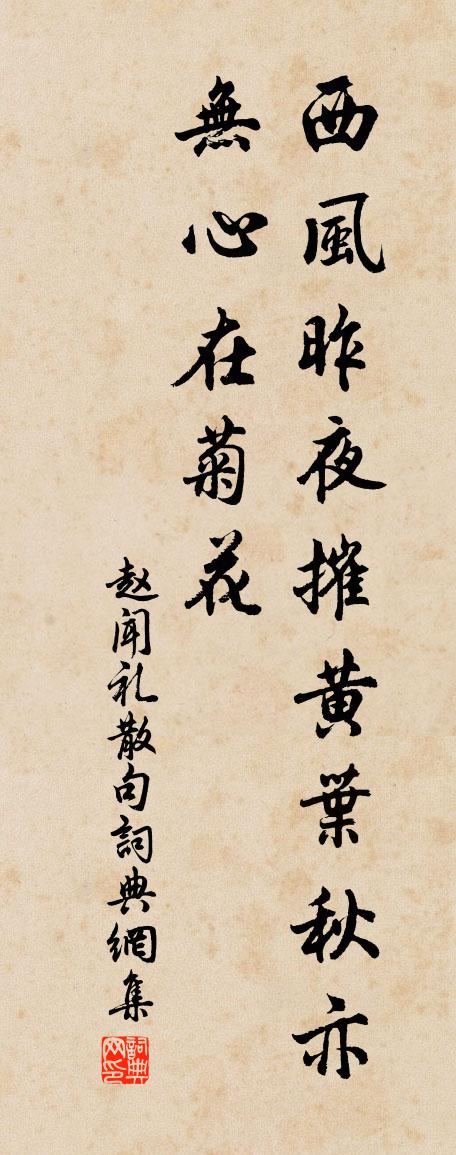 西風昨夜摧黃葉秋亦
無心在菊花
赵闻礼散句詞典網集
詞典网印